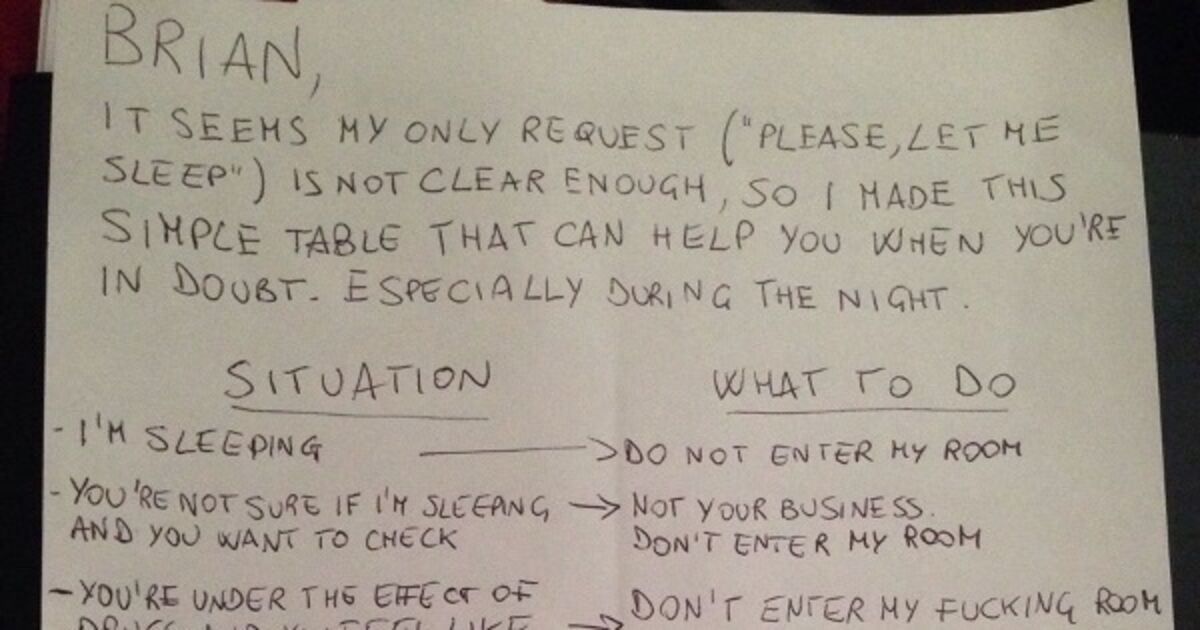 BRIAN,
IT SEEMS MY ONLY REQUEST ("PLEASE, LET ME
SLEEP") IS NOT CLEAR ENOUGH, SO I MADE THIS
SIMPLE TABLE THAT CAN HELP YOU WHEN YOU'RE
IN DOUBT. ESPECIALLY DURING THE NIGHT.
SITUATION WHAT TO DO
- I'M SLEEPING → DO NOT ENTER MY ROOM
- YOU'RE NOT SURE IF I'M SLEEPING → NOT YOUR BUSINESS.
AND YOU WANT TO CHECK DON'T ENTER MY ROOM
- YOU'RE UNDER THE EFFECT OF DON'T ENTER MY FUCKING ROOM
DRUGS AND YOU FEEL LIKE →